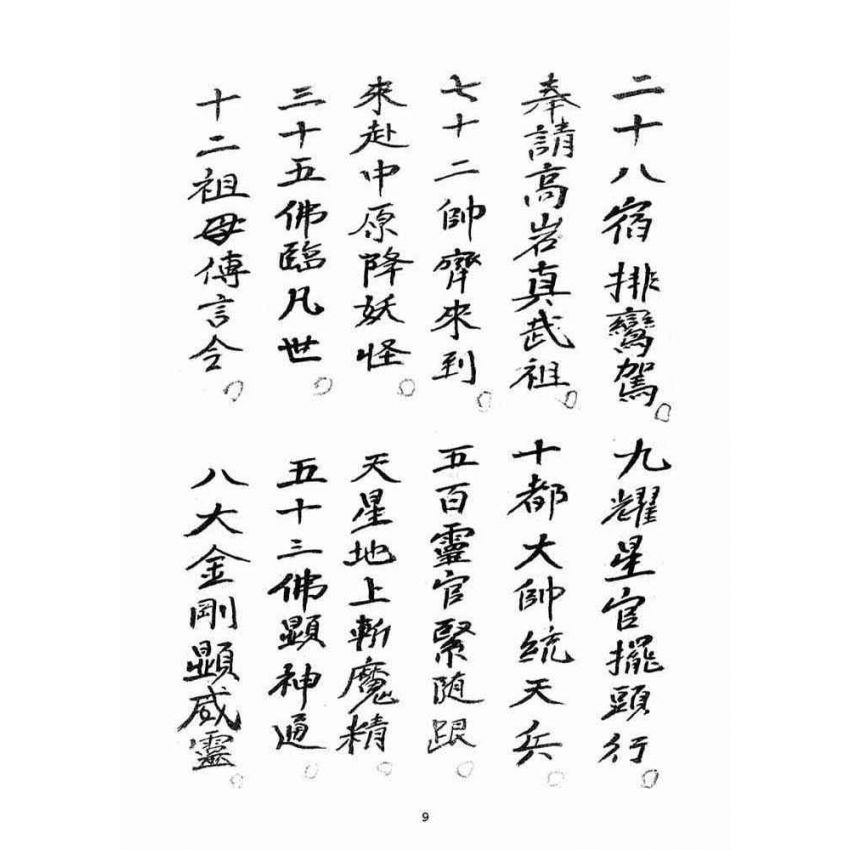 二十八宿排鸞駕○
九耀星官擺頭行○
奉請高岩真武祖○
十都大帥統天兵○
七十二帥齊來到○
五百靈官緊随跟○
來赴中原降妖怪○
天星地上斬魔精○
三十五佛臨凡世○
五十三佛顯神通○
十二祖母傅言令○
八大金剛顯威靈○
9